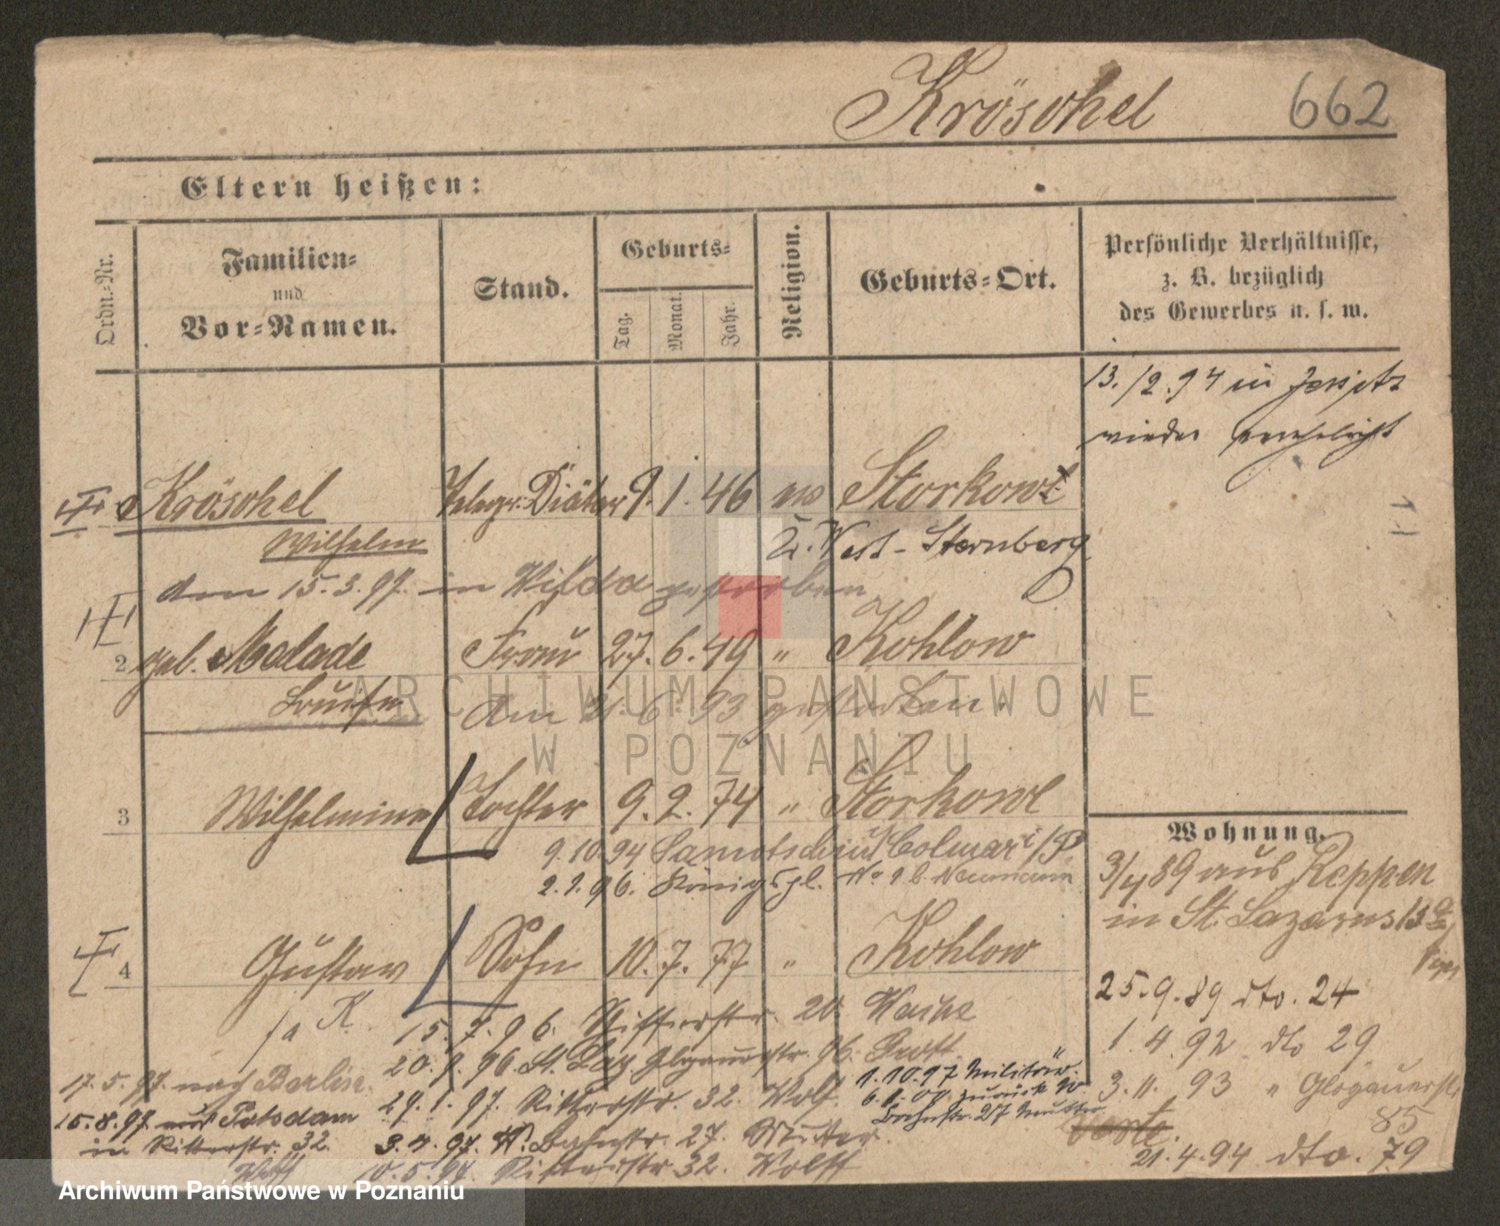 Kröschel 662
Eltern heißen:
Ordn.-Nr.
Familien-
und
Vor-Namen.
Stand.
Geburts-
Tag.
Monat.
Jahr.
Religion.
Geburts-Ort.
Persönliche Verhältnisse,
z. B. bezüglich
des Gewerbes u. s. w.
13./2.94 in Jersitz
wieder verehelicht
Kröschel Telegr. Diätar 9. 1. 46 ev Storkow
Wilhelm Kr. West-Sternberg
den 15.3.97. in Wilda gestorben
2 geb. Malade Frau 27. 6. 49 " Kohlow
Louise Am 21.6.93 gestorben.
3 Wilhelmine Tochter 9. 2. 74 " Storkow
9.10.94 Samotschin Colmar i/P
2.1.96. Königspl. No Neumann
4 Gustav Sohn 10. 7. 77 " Kohlow
15.7.96. Ritterstr. 20.
20.9.96. St. Laz Glogauerstr. 96.
17.5.97. nach Berlin.
29.1.97. Ritterstr. 32. Wolf.
1.10.97 Militär.
zurück
27 Mutter
15.8.97. aus Potsdam
in Ritterstr. 32.
Wolff
3.4.97. W. Bahnstr. 27. Mutter.
10.5.97. Ritterstr. 32. Wolff
Wohnung.
3/4 89 aus Reppen
in St. Lazarus 13
25.9.89 dto. 24
1.4.92 dto 29
3.11.93 " Glogauerstr.
85
21.4.94 dto. 79
ARCHIWUM PAŃSTWOWE
W POZNANIU
Archiwum Państwowe w Poznaniu